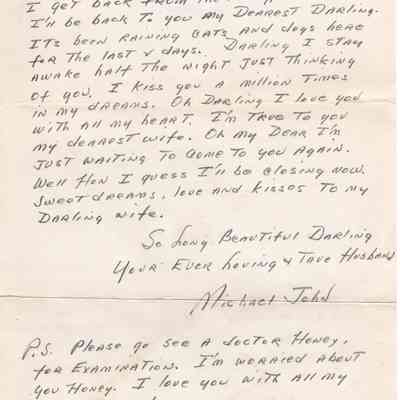 I get back from the
I'll be back to you my Dearest Darling.
Its been raining cats and dogs here
for the last 2 days. Darling I stay
awake half the night just thinking
of you. I kiss you a million times
in my dreams. Oh Darling I love you
with all my heart. I'm true to you
my dearest wife. Oh my Dear I'm
just waiting to come to you again.
Well Hon I guess I'll be closing now.
Sweet dreams, love and kisses to my
Darling wife.
So Long Beautiful Darling
Your Ever Loving & True Husband
Michael John
P.S. Please go see a doctor Honey,
for examination. I'm worried about
you Honey. I love you with all my